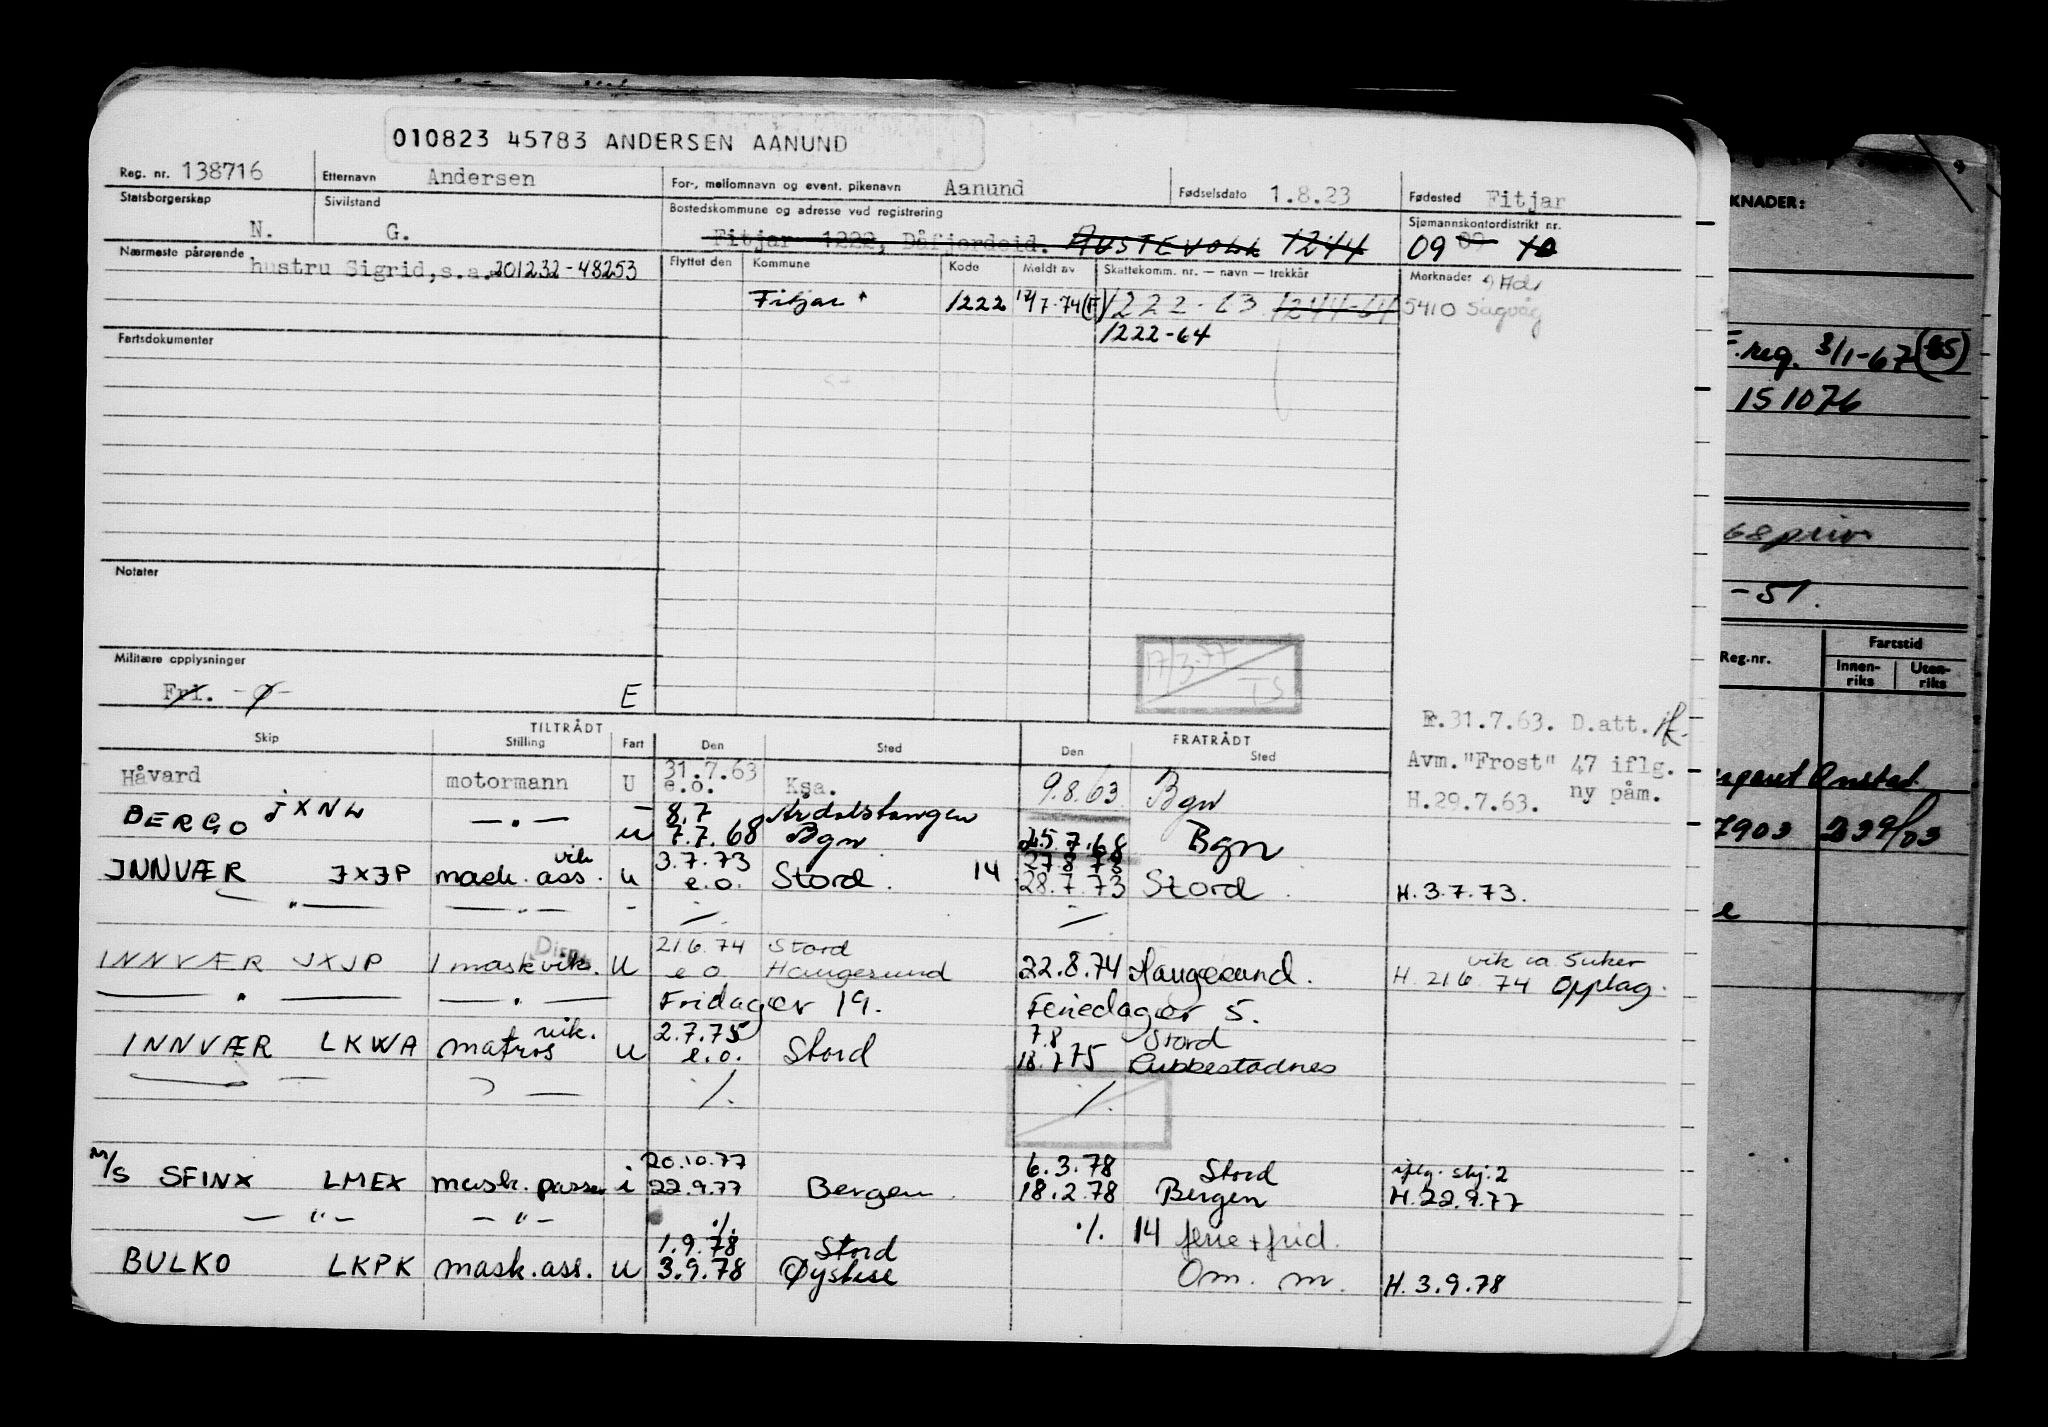 010823 45783 ANDERSEN AANUND
Reg. nr. 138716 Etternavn Andersen For-, mellomnavn og event. pikenavn Aanund Fødselsdato 1.8.23 Fødested Fitjar
Statsborgerskap N. Sivilstand G. Bostedskommune og adresse ved registrering Fitjar 1222, Dåfjordeid. AUSTEVOLL 1244 Sjømannskontordistrikt nr. 09 09 10
Nærmeste pårørende hustru Sigrid, s.a. 201232-48253 Flyttet den Kommune Kode Meldt av Skattekomm. nr. — navn — trekkår Merknader
Fitjar 1222 1222-63 1244-64 5410 Sagvåg
1222-64
Fartsdokumenter
Notater
17/3-77
TS
Militære opplysninger
Fri. E
F.31.7.63. D.att.
TILTRÅDT FRATRÅDT
Skip Stilling Fart Den Sted Den Sted
Avm. "Frost" 47 iflg.
H.29.7.63. ny påm.
Håvard motormann U 31.7.63 e.o. Ksa. 9.8.63 Bgn
BERGO JXNW — " — 8.7 Årdalstangen
u 7.7.68 Bgn 25.7.68 Bgn
INNVÆR JXJP mask. ass. vik u 3.7.73 e.o. Stord. 14 27 8 73
28.7.73 Stord. H. 3.7.73.
— " — — " — - ./. ./.
INNVÆR JXJP 1 mask vik. U 21 6 74 Stord
e o Haugesund 22.8.74 Haugesund. H. 21 6 74 Opplag.
— " — — " — Fridager 19. Feriedager 5.
INNVÆR LKWA matros vik. U 2.7.75 e.o. Stord 7.8 Stord
18.7 75 Rubbestadnes
./. ./.
M/S SFINX LMEX mask. passer i 20.10.77
22.9.77 Bergen. 6.3.78 Stord
18.2.78 Bergen iflg. skj. 2
H. 22.9.77
— " — — " — ./. ./. 14 ferie + frid.
BULKO LKPK mask. ass. u 1.9.78 Stord
3.9.78 Øystese Om. m. H. 3.9.78
KNADER:
F. reg. 3/1-67 (85)
151076
68 priv
-51.
Reg.nr. Fartstid
Innen-riks Uten-riks
Onstad
7903 239/03